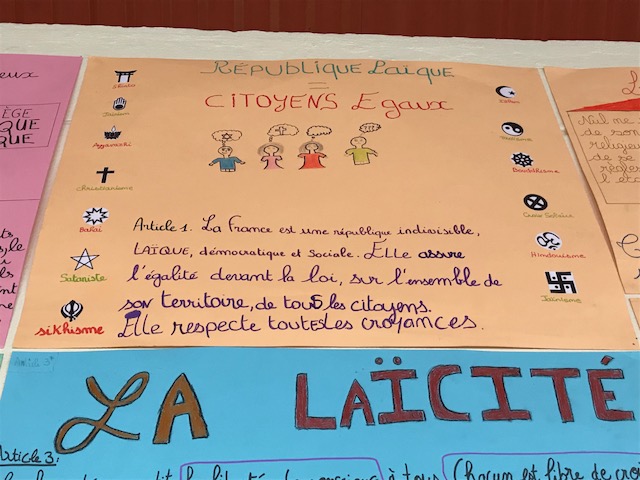 RÉPUBLIQUE Laïque
=
CITOYENS Egaux
Shinto
Ayyavazhi
christianisme
Bahaï
Sataniste
sikhisme
Islam
Taoïsme
Bouddhisme
Croix Solaire
Hindouisme
Jaïnisme
Article 1. La France est une république indivisible,
LAÏQUE, démocratique et sociale. Elle assure
l'égalité devant la loi, sur l'ensemble de
son territoire, de tous les citoyens.
Elle respecte toutes les croyances.
Nul ne
de son
religieu
de
l'éta
Article 3
LA LAÏCITÉ
Article 3:
la liberté de conscience à tous. Chacun est libre de croi